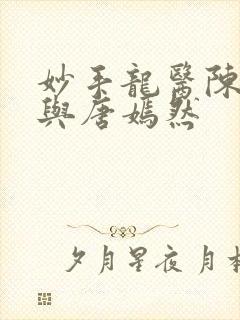 妙手龍醫陳
與唐嫣然
夕月星夜 月